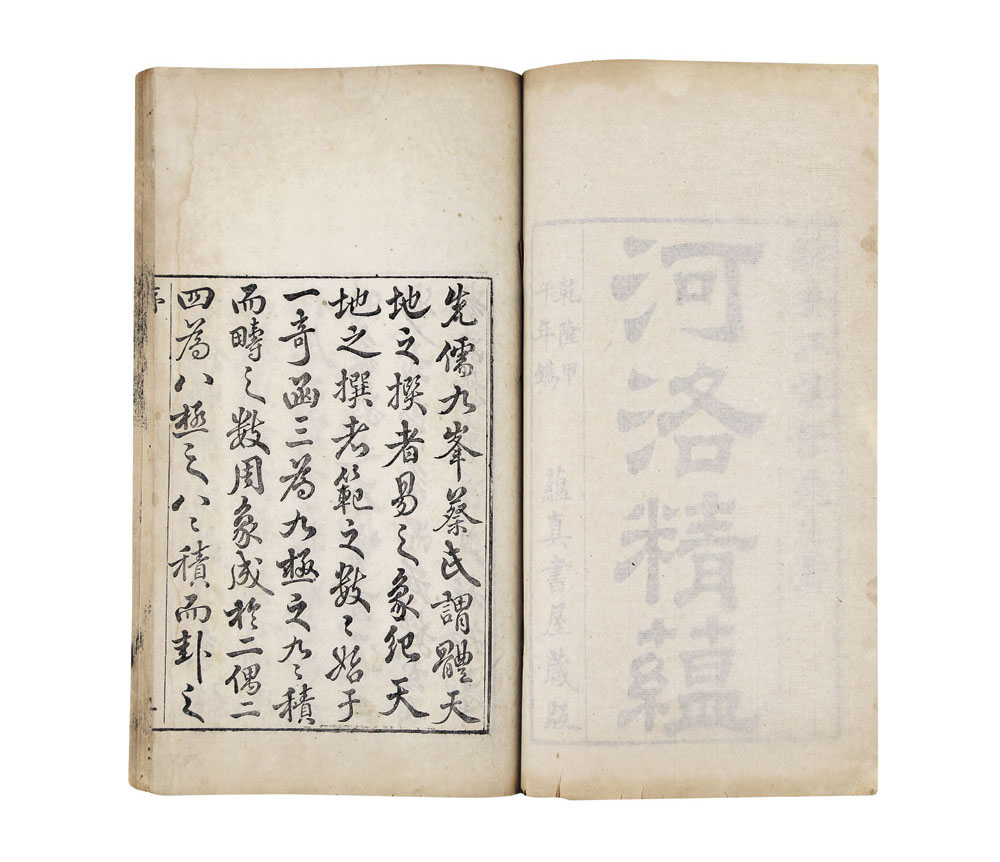 河洛精蘊
乾隆甲
午年鐫
蘊真書屋藏版
先儒九峯蔡氏謂體天
地之撰者易之象紀天
地之撰者範之數〻始于
一奇函三為九極之九〻積
而疇之數周象成於二偶二
四為八極之八〻積而卦之
序